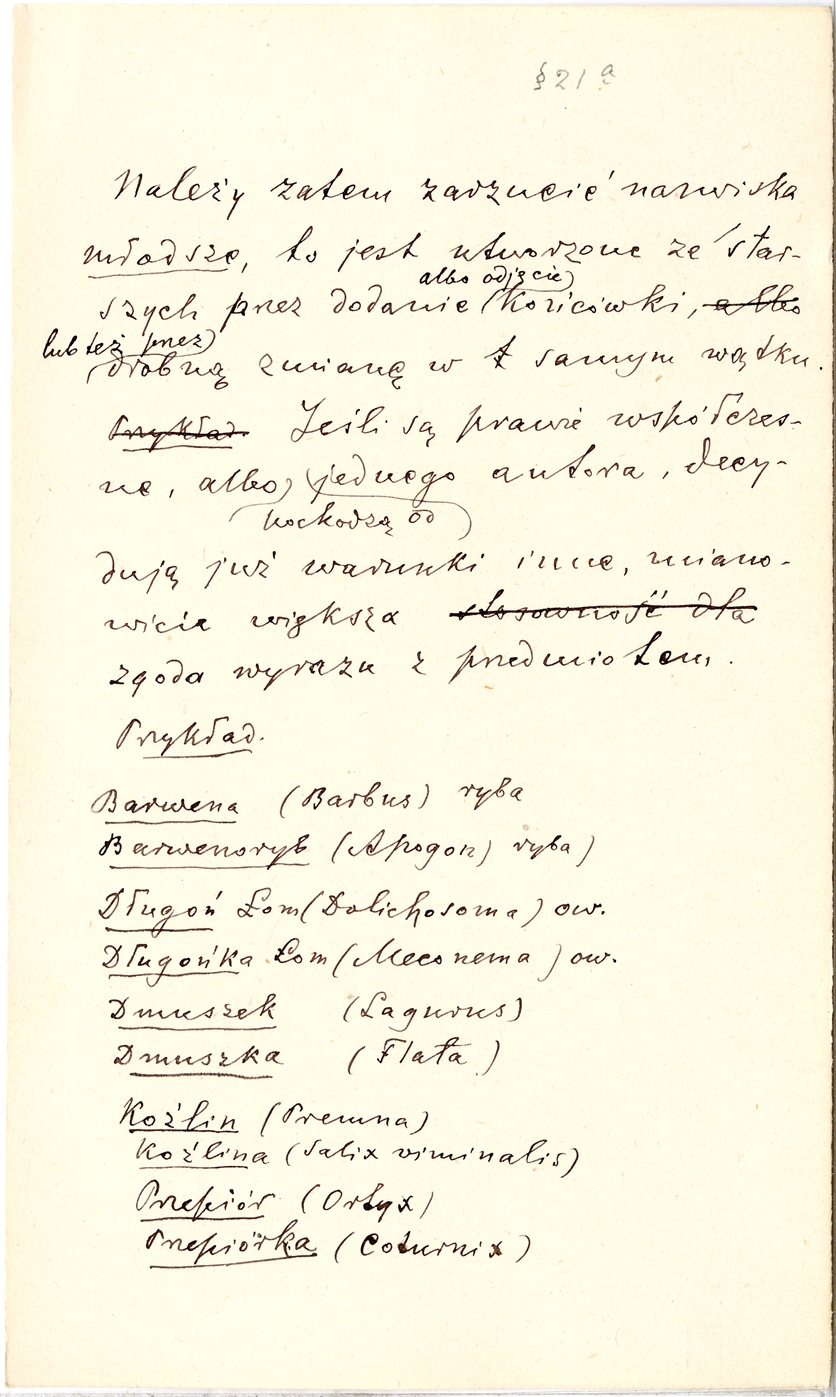 § 21 a
Należy zatem zarzucić nazwiska
młodsze, to jest utworzone ze star-
albo odjęcie
szych przez dodanie końcówki, albo
lub też przez
drobną zmianę w t samym wątku.
Przykład. Jeśli są prawie współczes-
ne, albo jednego autora, decy-
pochodzą od
dują już warunki inne, miano-
wicie większa stosowność dla
zgoda wyrazu z przedmiotem.
Przykład.
Barwena (Barbus) ryba
Barwenoryb (Apogon) ryba)
Długoń Łom (Dolichosoma) ow.
Długońka Łom (Meconema) ow.
Dmuszek (Lagurus)
Dmuszka (Flata)
Koźlin (Premna)
Koźlina (Salix viminalis)
Przepiór (Ortyx)
Przepiórka (Coturnix)